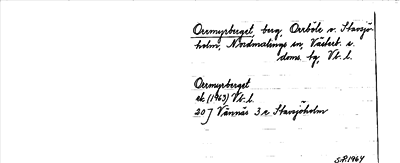 Orrmyrberget, berg, Orrböle v. Stavsjö-
holm, Nordmalings sn, Västerb. s.
doms. tg, Vb. l.
Orrmyrberget
ek (1963) Vb. l.
20 J Vännäs 3 e Stavsjöholm
S.R. 1964